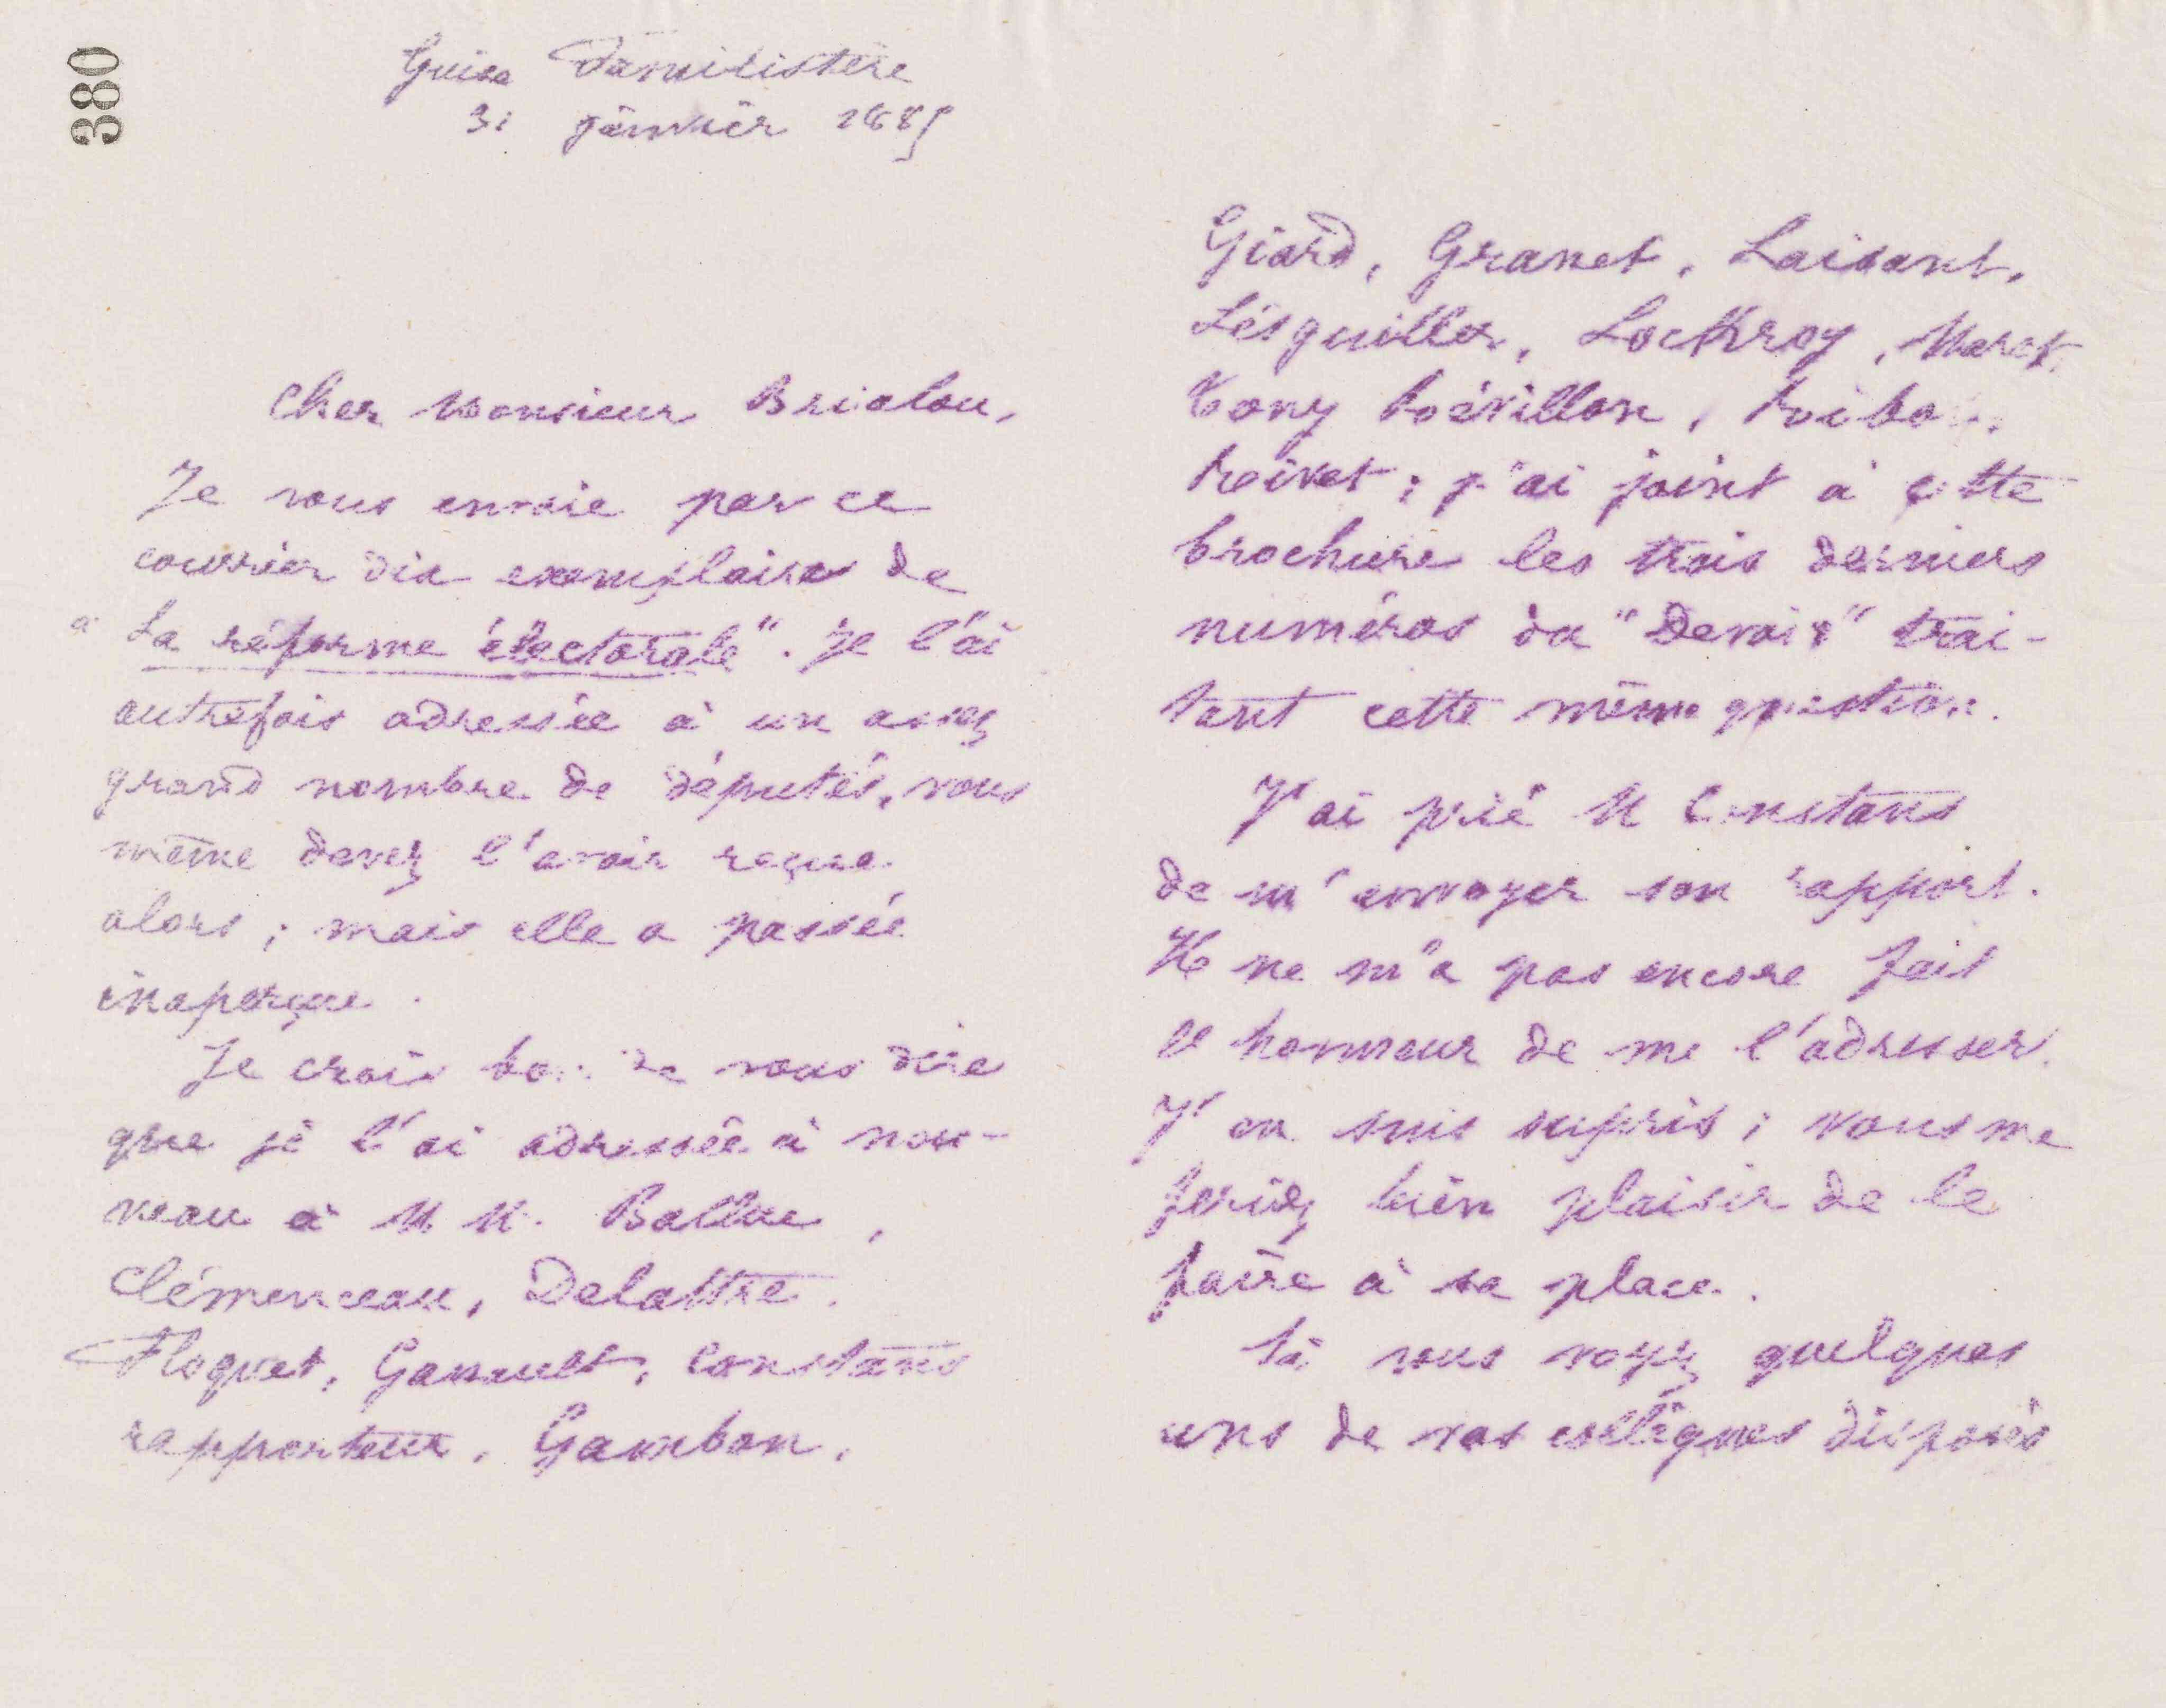 380
Guise Familistère
31 janvier 1885
Cher Monsieur Brialou,
Je vous envoie par ce
courrier dix exemplaires de
" La réforme électorale". Je l'ai
autrefois adressée à un assez
grand nombre de députés, vous
même devez l'avoir reçue
alors ; mais elle a passée
inaperçue.
Je crois bon de vous dire
que je l'ai adressée à nou-
veau à M M. Ballue,
Clémenceau, Delattre.
Floquet, Ganault, Constans
rapporteur, Gambon,
Giard, Granet, Laisant,
Lesguiller, Lockroy, Maret.
Tony Révillon,
Rivet ; j'ai joint à cette
brochure les trois derniers
numéros du "Devoir" trai-
tant cette même question.
J'ai prié M Constans
de m'envoyer son rapport.
Il ne m'a pas encore fait
l'honneur de me l'adresser.
J'en suis supris ; vous me
feriez bien plaisir de le
faire à sa place.
Si vous voyez quelques
uns de vos collègues disposés